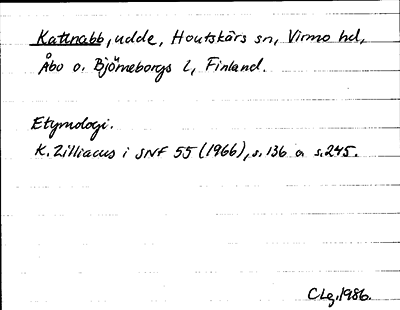 Kattnabb, udde, Houtskärs sn, Virmo hd,
Åbo o. Björneborgs l, Finland.
Etymologi.
K. Zilliacus i SNF 55 (1966), s. 136 o s. 245.
CLg. 1986.